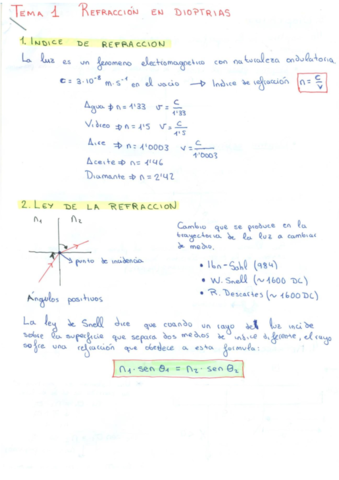 TEMA 1 REFRACCIÓN EN DIOPTRIAS
1. INDICE DE REFRACCION
La luz es un fenomeno electromagnetico con naturaleza ondulatoria
c = 3·10⁻⁸ m·s⁻¹ en el vacio → Indice de refracción n = c/v
Agua ⇒ n = 1'33 v = c/1'33
Vidreo ⇒ n = 1'5 v = c/1'5
Aire ⇒ n = 1'0003 v = c/1'0003
Aceite ⇒ n = 1'46
Diamante ⇒ n = 2'42
2. LEY DE LA REFRACCION
n₁ n₂
punto de incidencia
Ángulos positivos
Cambio que se produce en la
trayectoria de la luz a cambiar
de medio.
• Ibn-Sahl (984)
• W. Snell (~1600 DC)
• R. Descartes (~1600 DC)
La ley de Snell dice que cuando un rayo de luz incide
sobre la superficie que separa dos medios de indice diferente, el rayo
sufre una refracción que obedece a esta formula:
n₁ · sen θ₁ = n₂ · sen θ₂